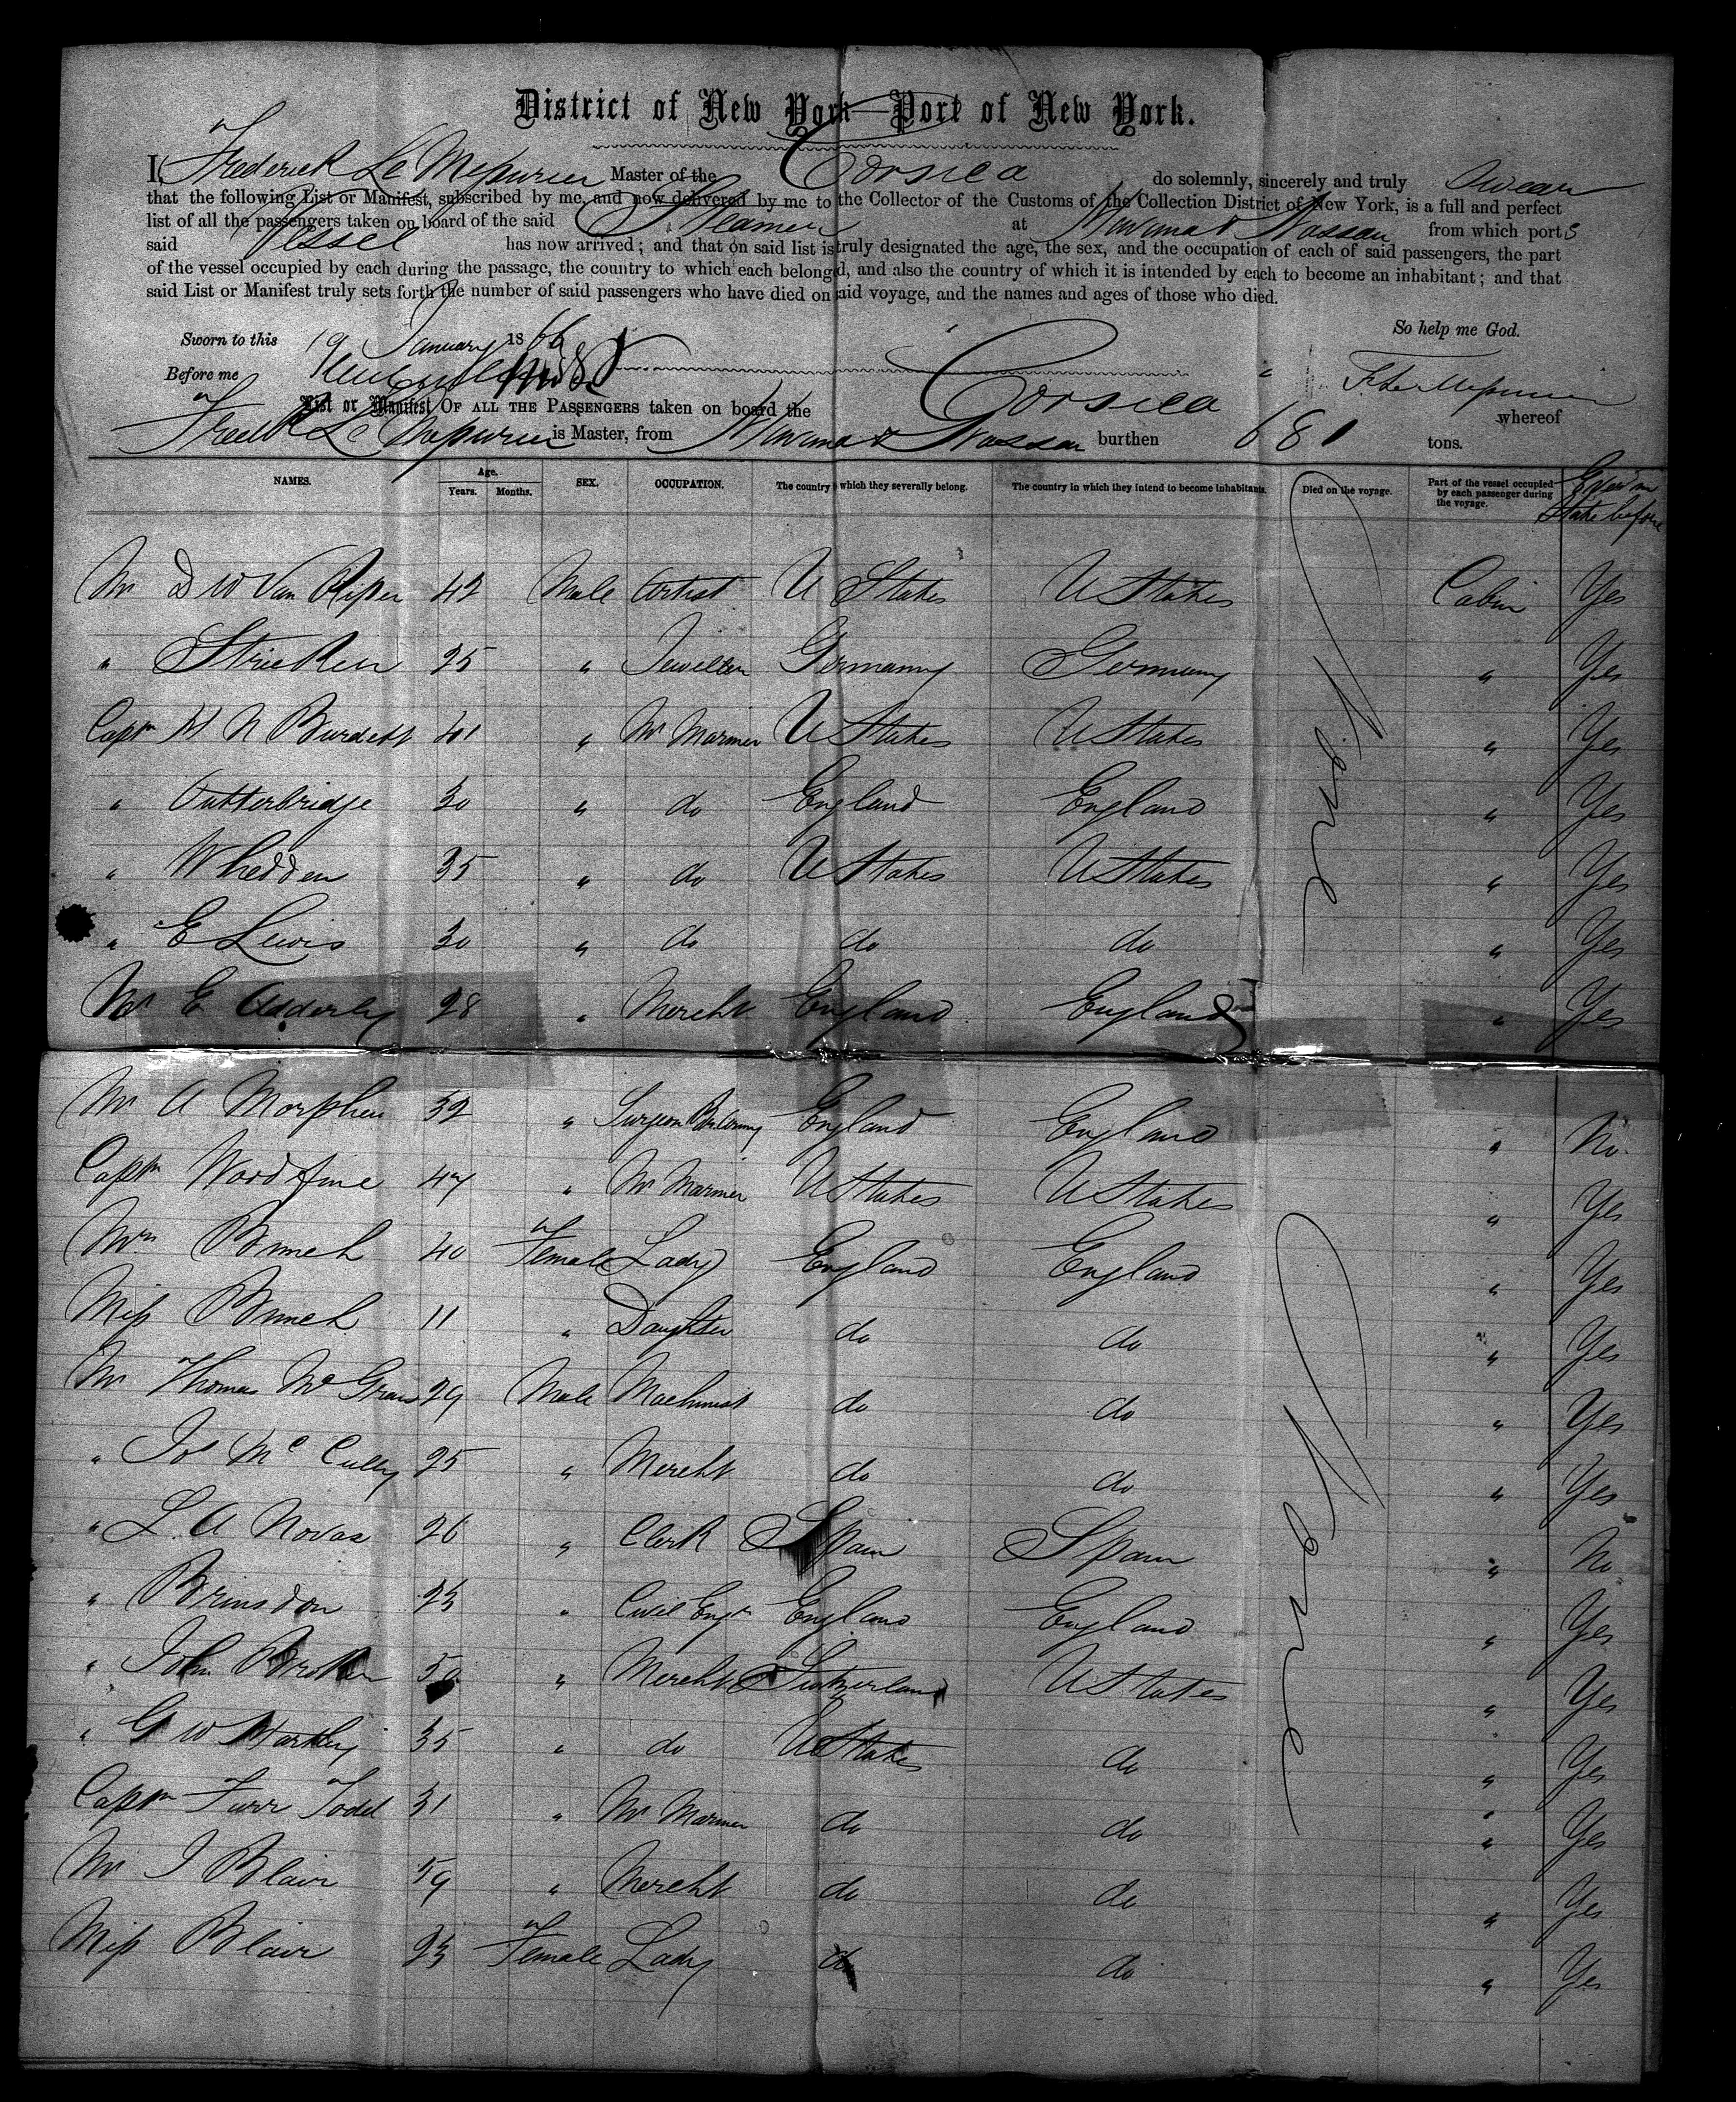 District of New York—Port of New York.
I, Frederick Le Mesurier Master of the Corsica do solemnly, sincerely and truly Swear
that the following List or Manifest, subscribed by me, and now delivered by me to the Collector of the Customs of the Collection District of New York, is a full and perfect
list of all the passengers taken on board of the said Steamer at Havana & Nassau from which ports
said Vessel has now arrived; and that on said list is truly designated the age, the sex, and the occupation of each of said passengers, the part
of the vessel occupied by each during the passage, the country to which each belonged, and also the country of which it is intended by each to become an inhabitant; and that
said List or Manifest truly sets forth the number of said passengers who have died on said voyage, and the names and ages of those who died.
So help me God.
Sworn to this 19 January 1866
Before me
F Le Mesurier
List or Manifest OF ALL THE PASSENGERS taken on board the Corsica whereof
Fredk Le Mesurier is Master, from Havana & Nassau burthen 681 tons.
NAMES. Age. Years. Months. SEX. OCCUPATION. The country to which they severally belong. The country in which they intend to become inhabitants. Died on the voyage. Part of the vessel occupied by each passenger during the voyage. State before
Mr D W Van Riper 42 Male Artist U States U States Cabin Yes
" Stricken 25 " Jeweller Germany Germany " Yes
Captn H N Burdett 41 " Mr Mariner U States U States " Yes
" Outterbridge 30 " do England England " Yes
" Whedden 35 " do U States U States " Yes
" E Lewis 30 " do do do " Yes
Mr E Adderley 28 " Mercht England England " Yes
None
Mr A Morphew 32 " Surgeon England England " No
Captn Woodfine 47 " Mr Mariner U States U States " Yes
Mrs Bunch 40 Female Lady England England " Yes
Miss Bunch 11 " Daughter do do " Yes
Mr Thomas McGraw 29 Male Machinist do do " Yes
" Jos McCully 25 " Mercht do do " Yes
" L. A Novas 26 " Clerk Spain Spain " No
" Brinsdon 23 " Civil Engr England England " Yes
" John 50 " Mercht Switzerland U States " Yes
" G W Hartley 35 " do U States do " Yes
Captn Furr Todd 31 " Mr Mariner do do " Yes
Mr J Blair 59 " Mercht do do " Yes
Miss Blair 23 Female Lady do do " Yes
None